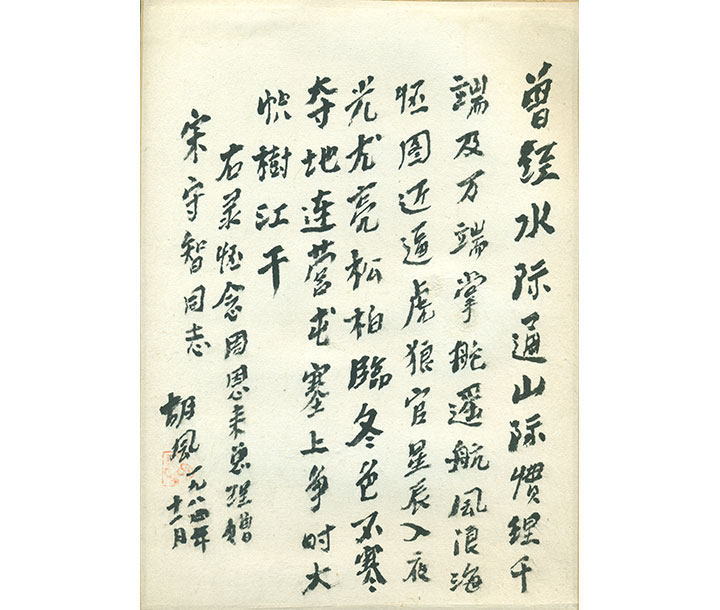 曾经水际通山际惯理千
端及万端掌舵遥航风浪海
怀图近逼虎狼官星辰入夜
光尤亮松柏臨冬色不寒
夺地连營屯塞上争时大
帜樹江干
右录怀念周恩来总理赠
宋守智同志
胡风一九八四年
十一月